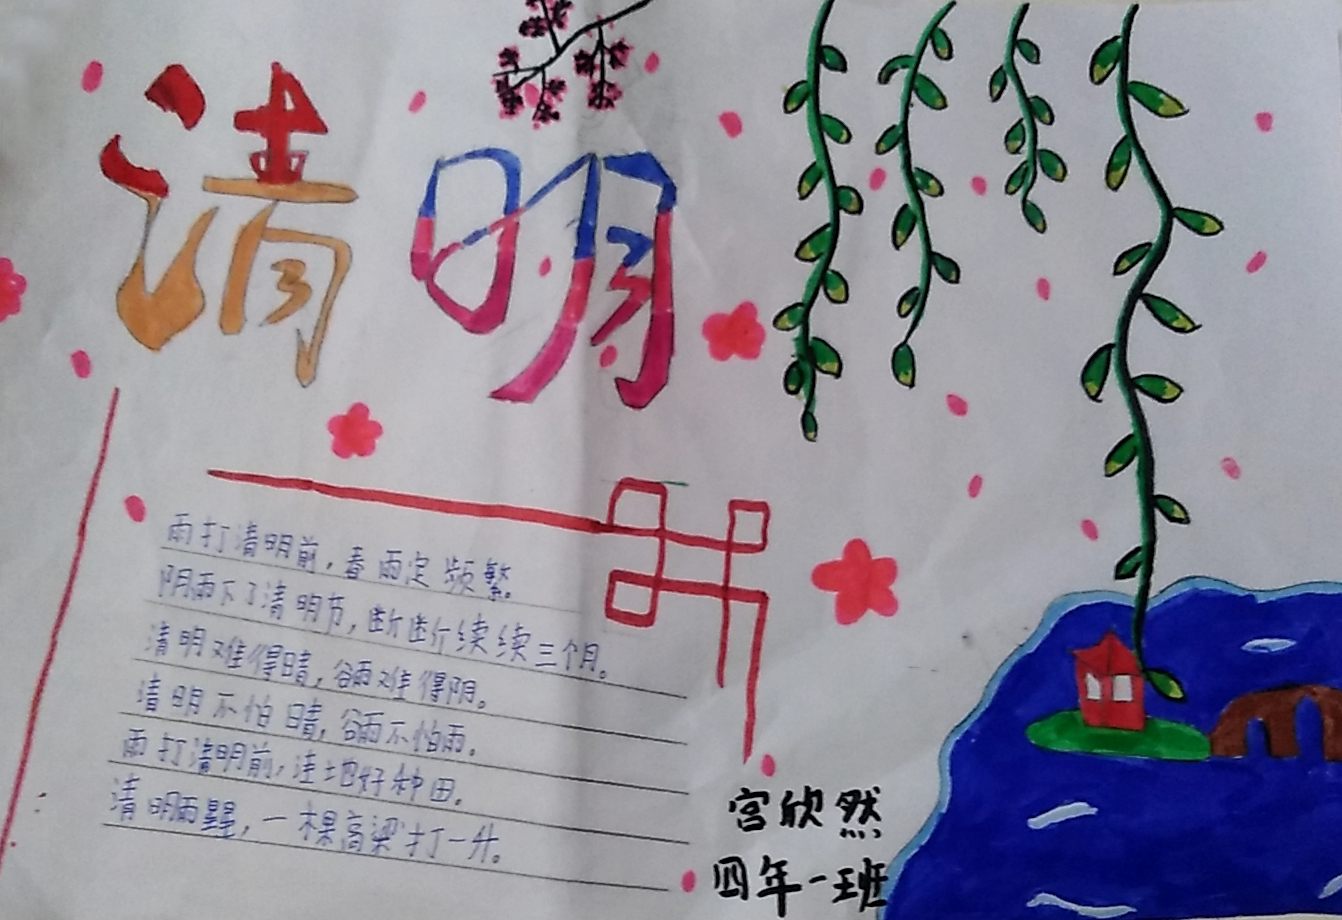 清明
雨打清明前，春雨定频繁。
阴雨下了清明节，断断续续三个月。
清明难得晴，谷雨难得阴。
清明不怕晴，谷雨不怕雨。
雨打清明前，洼地好种田。
清明雨星星，一棵高粱打一升。
宫欣然
四年一班